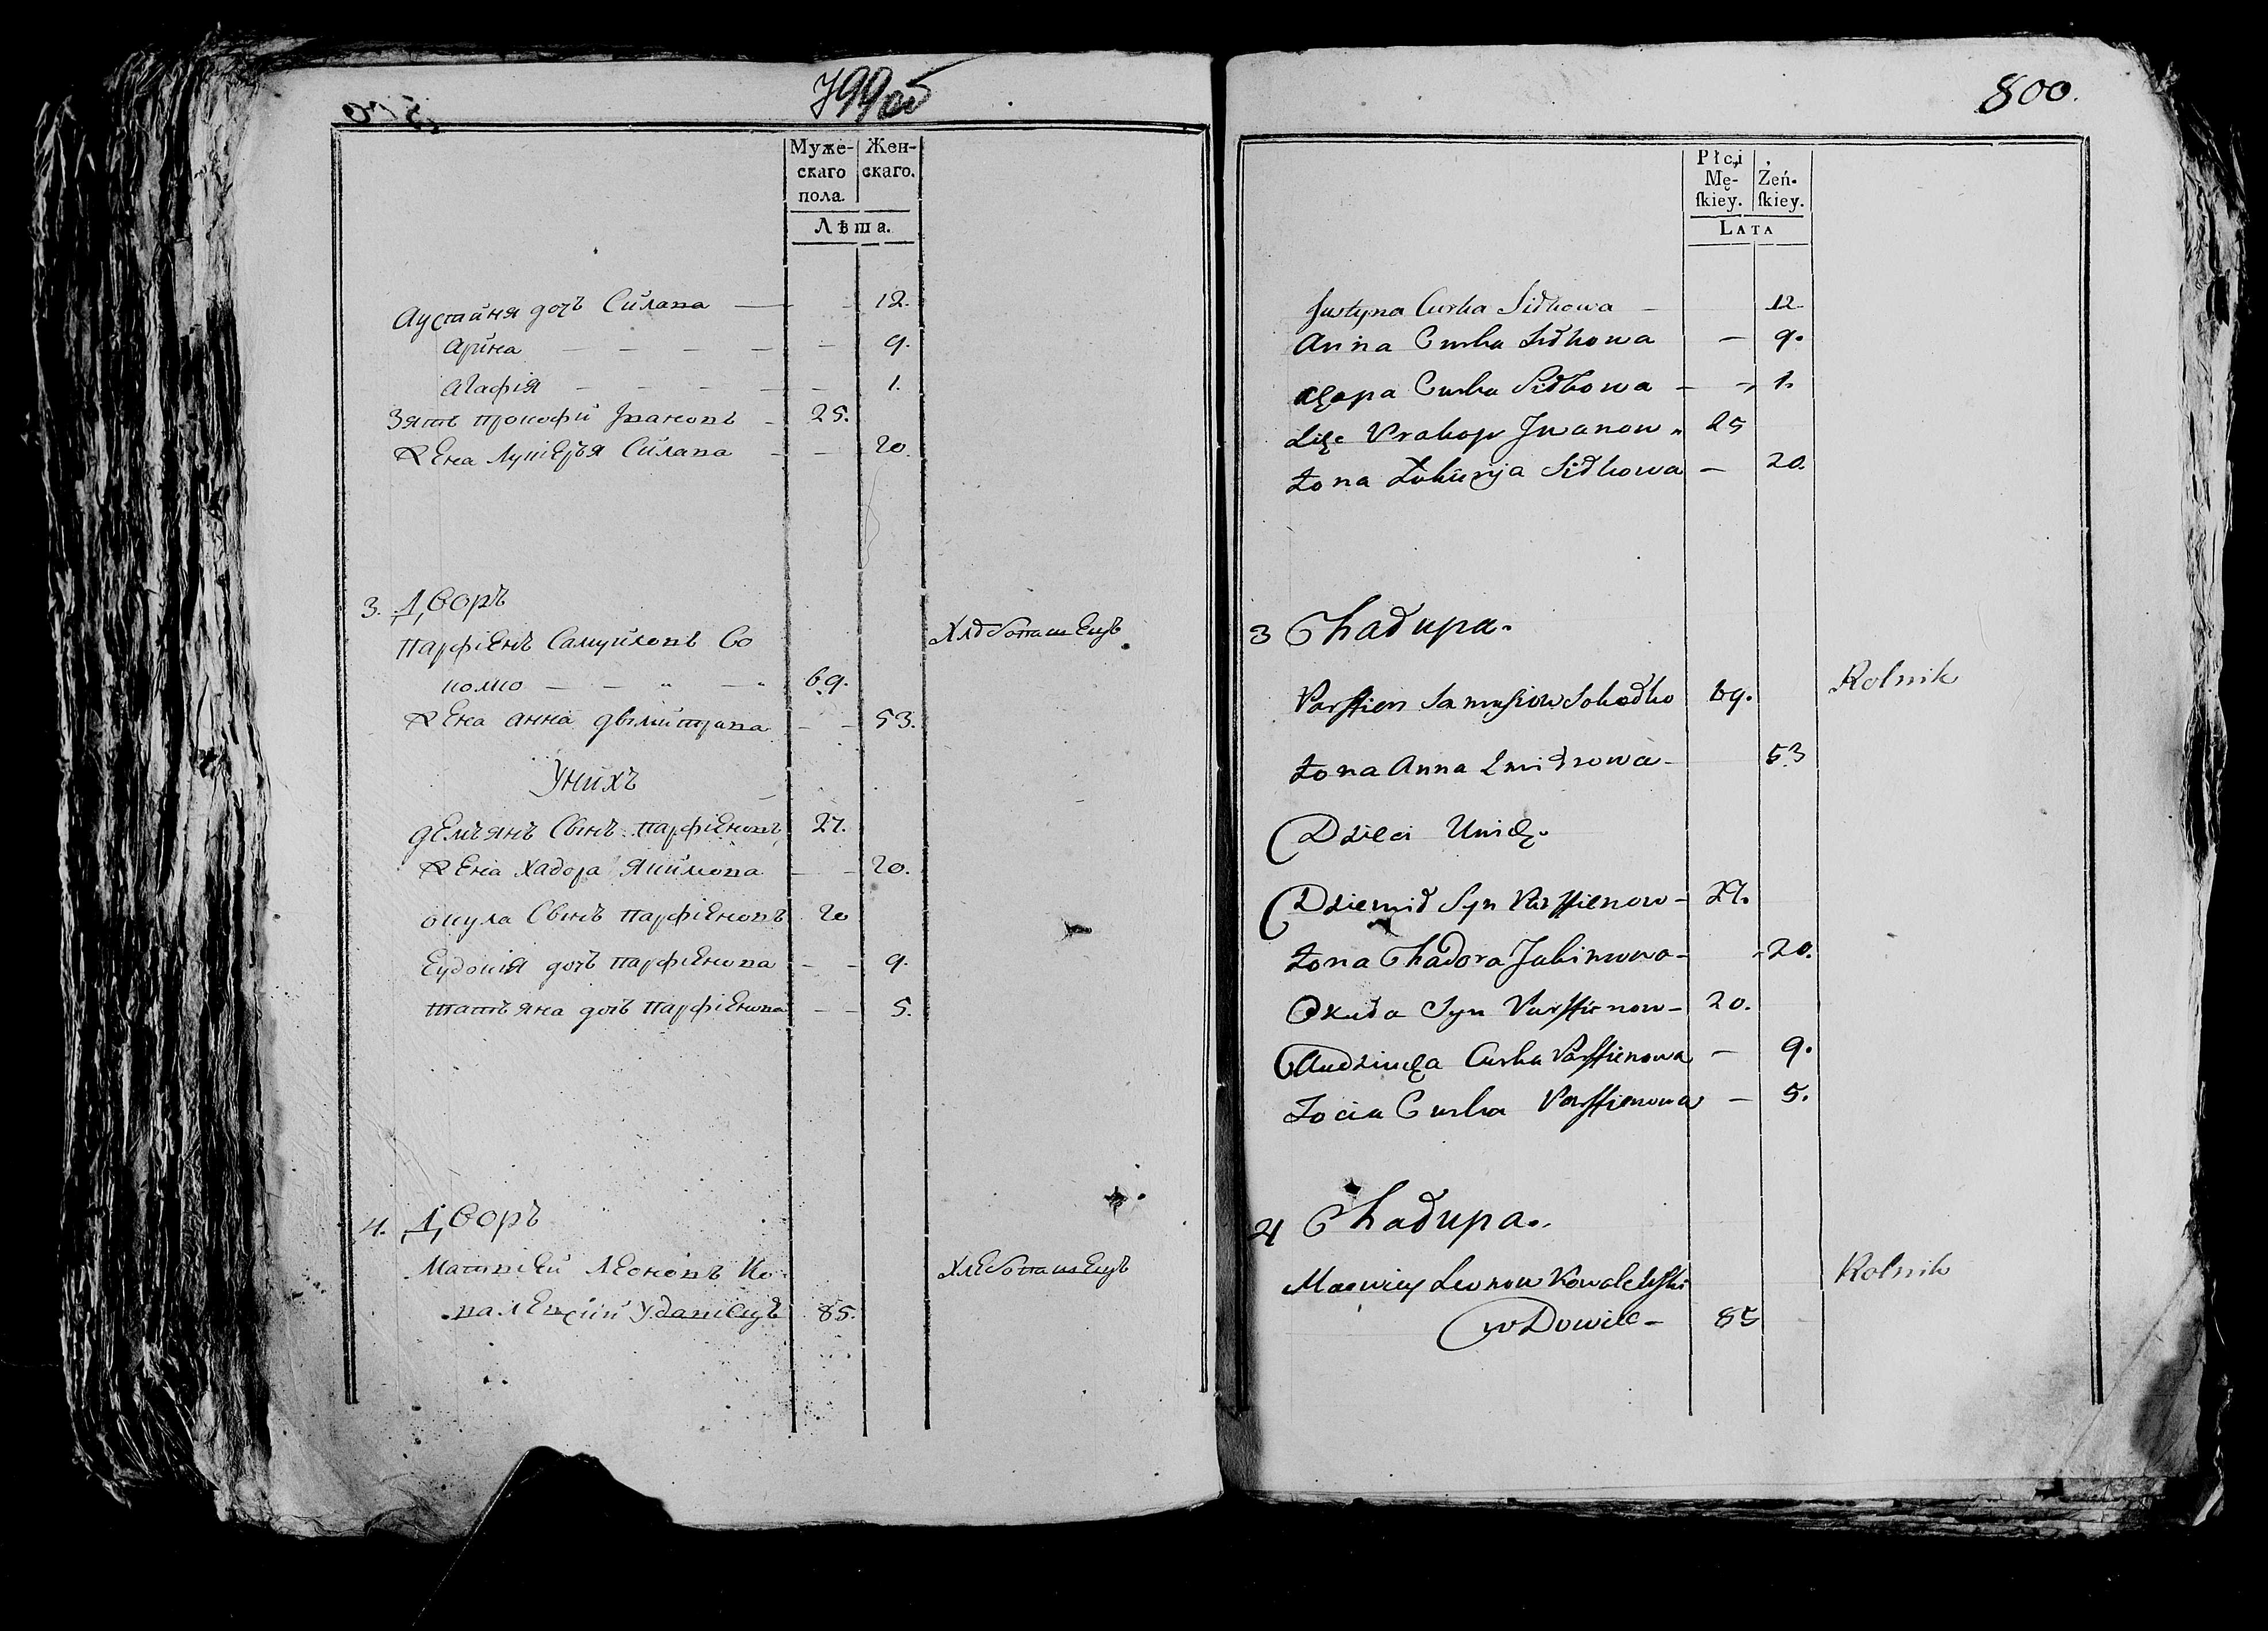 799об
Муже-
скаго
пола.
Жен-
скаго.
Лѣта.
Аустиня дочъ Силава — 12.
Арина — — — — — 9.
Агафія — — — — — 1.
Зять прокофй Ивановъ - 25.
Жена Лукіерья Силава - — 20.
3. Дворъ
Парфіенъ Самуйловъ Со
колко — — " — " 69.
Хлѣбопашецъ
Жена Анна дымитрава — - 53.
Унихъ
демьянъ Сынъ парфіеновъ 27.
Жена Хадора Якимова — - 20.
окула Сынъ парфіеновъ 20
Еудокія дочъ парфіенова — - 9.
татьяна дочъ парфіенова — - 5.
4. Дворъ
Матвіей Леоновъ Ко
валевский Удавецъ 85.
Хлебопашецъ
800.
Płci
Mę-
ſkiey.
Żeń-
ſkiey.
LATA
Justyna Curka Sidkowa — 12
Anna Curka Sidkowa — 9.
Agapa Curka Sidkowa — 1.
Prakop Jwanow " 25
żona Łukiirya Sidkowa — 20.
3 Chałupa.
Parffien Samusiow Sokołko 69.
Rolnik
żona Anna Zmitrowa - 53
Dzieci Unich.
Dziemid Syn Parffienow - 27.
żona Chadora Jakimowa - 20.
Okuła Syn Parffienow - 20.
Audziucha Curka Parffienowa — 9.
Tocia Curka Parffienowa — 5.
4 Chałupa.
Maowiey Leonow Kowalewski
Rolnik
wDowiec - 85